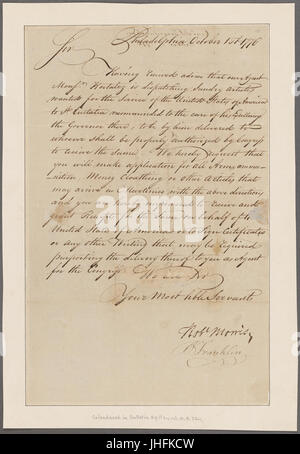 Philadelphia October 1st 1776
Sir
Having Received advice that our Agent
Monsr. Hortalez is dispatching Sundry articles
wanted for the Service of the United States of America
to St. Eustatia recommended to the care of his Excellency
the Governor there, to be by him delivered to
whoever shall be properly authorized by Congress
to receive the same. We hereby request that
you will make application for all Arms ammu
nition Money Cloathing or other Articles that
may arrive in Eustatia with the above directions
and you are fully empowered to receive and
grant Receipts for the same on behalf of the
United States of America or to Sign Certificates
or any other Writing that may be required
purporting the delivery thereof to you as Agent
for the Congress. We are Sir
Your Most hble Servants
Robt Morris
B Franklin
Calendared in Bulletin
alamy
Image ID: JHFKCW
www.alamy.com